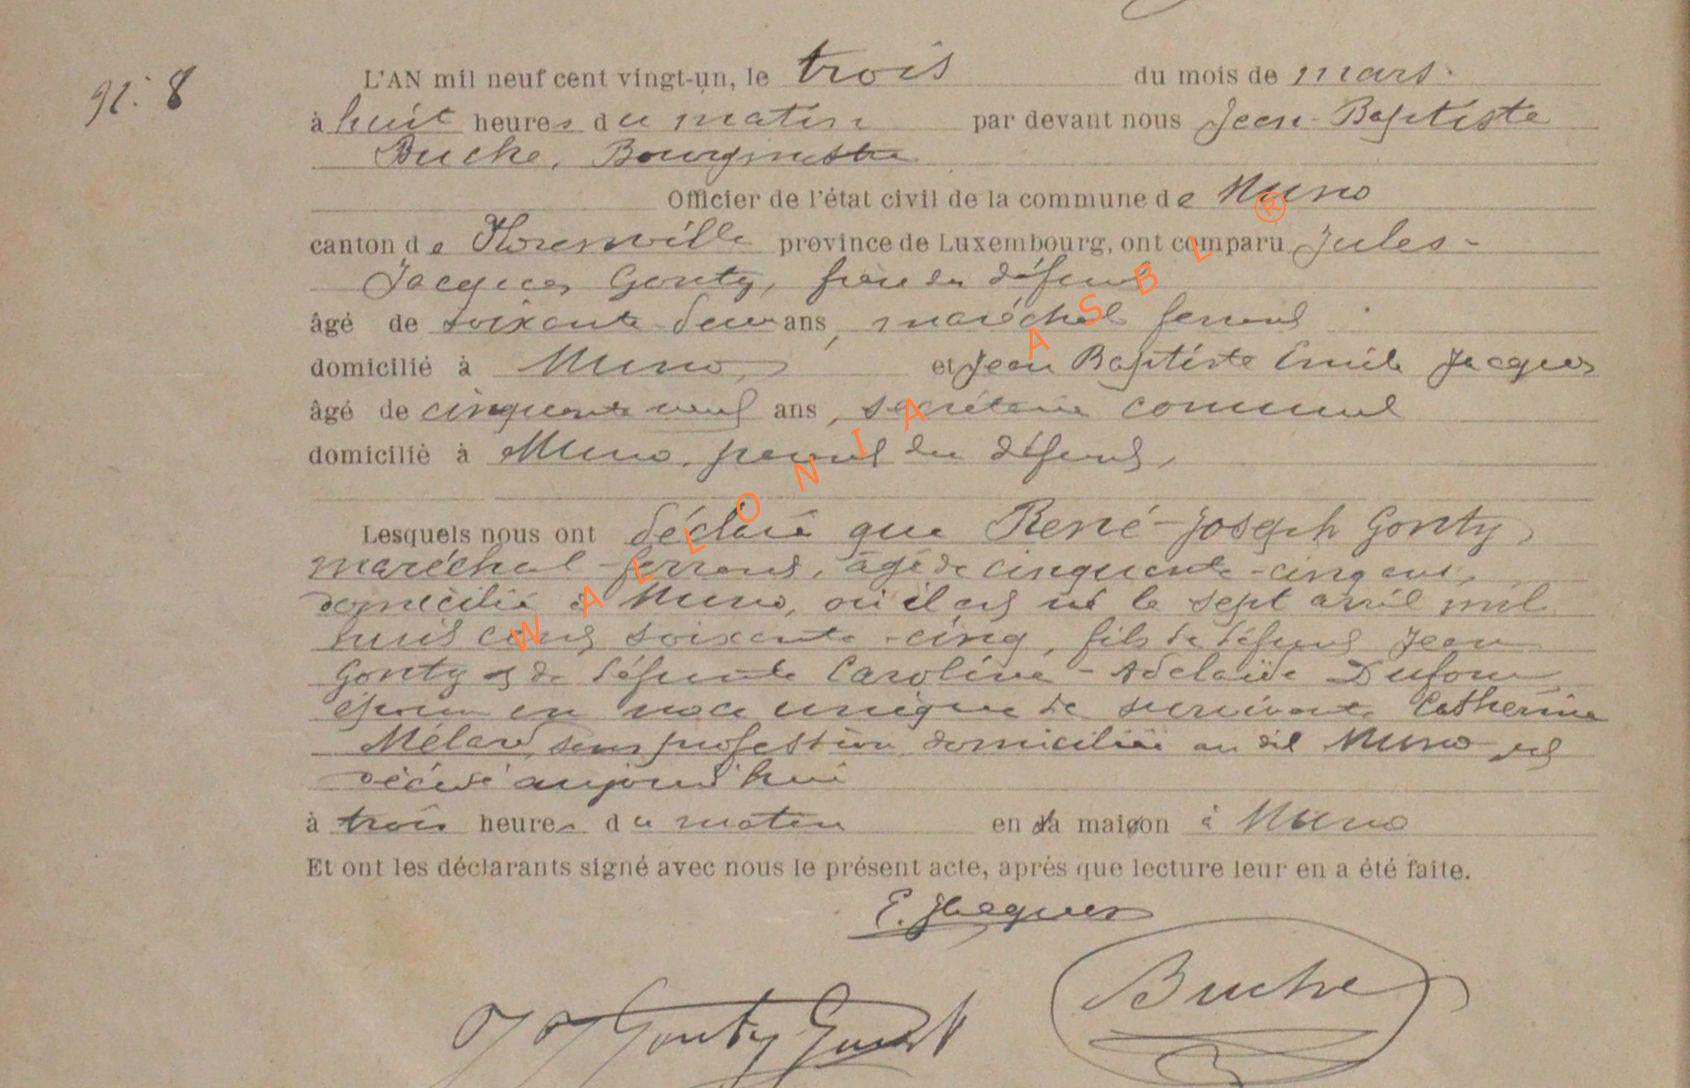 N° 8
L'AN mil neuf cent vingt-un, le trois du mois de mars.
à huit heures du matin par devant nous Jean-Baptiste
Buche, Bourgmestre
Officier de l'état civil de la commune de Muno
canton de Florenville province de Luxembourg, ont comparu Jules-
Jacques Gonty, frère du défunt
âgé de soixante-deux ans, maréchal ferrant
domicilié à Muno, et Jean Baptiste Emile Jacques
âgé de cinquante neuf ans, secrétaire communal
domicilié à Muno, parent du défunt,
Lesquels nous ont déclaré que René-Joseph Gonty,
maréchal-ferrant, âgé de cinquante-cinq ans,
domicilié à Muno, où il est né le sept avril mil
huit cent soixante-cinq, fils de défunt Jean
Gonty et de défunte Caroline-Adelaïde Dufour
époux en noce unique de survivante Catherine
Mélard, sans profession domiciliée au dit Muno est
décédé aujourd'hui
à trois heures du matin en sa maison à Muno
Et ont les déclarants signé avec nous le présent acte, après que lecture leur en a été faite.
E. Jacques
Buche
J J Gonty
WALLONIA ASBL ®